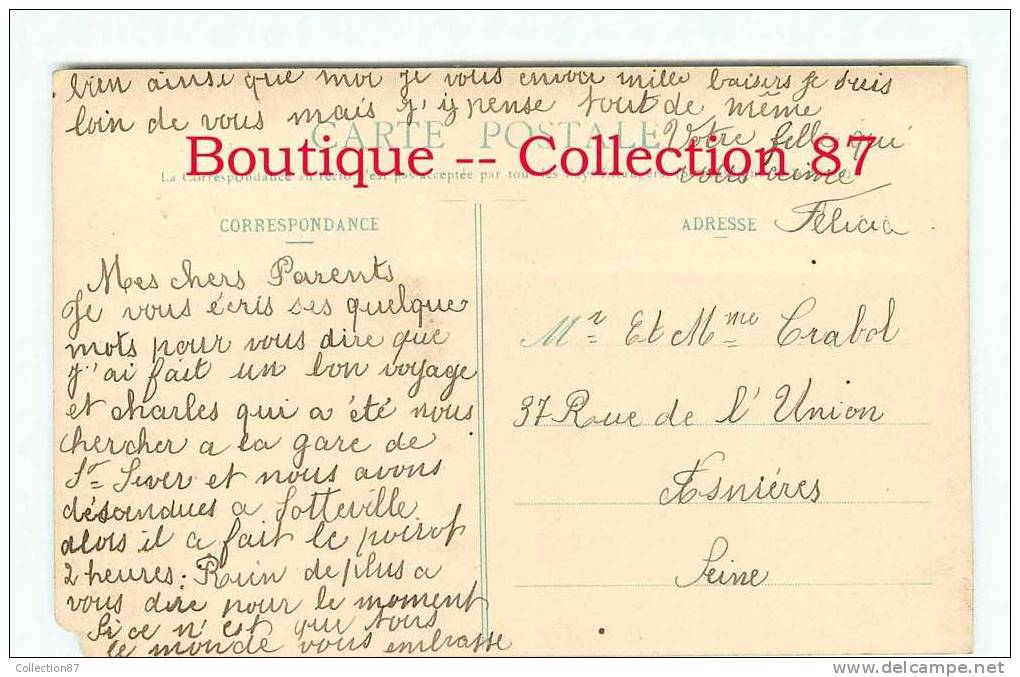 bien ainsi que moi je vous envoie mille baisers je suis
loin de vous mais j'y pense tout de même
CARTE POSTALE
Votre fille qui
vous aime
Félicia
Boutique -- Collection 87
La Correspondance au recto n'est pas acceptée par tous les pays étrangers
CORRESPONDANCE
Mes chers Parents
Je vous écris ses quelque
mots pour vous dire que
j'ai fait un bon voyage
et charles qui a été nous
chercher a la gare de
St Sever et nous avons
désendues a Sotteville
alors il a fait le poirot
2 heures. Rien de plus a
vous dire pour le moment
Si ce n'est que tous
le monde vous embrasse
ADRESSE
Mr Et Mme Crabol
37 Rue de l'Union
Asniéres
Seine
Collection87
delcampe.net